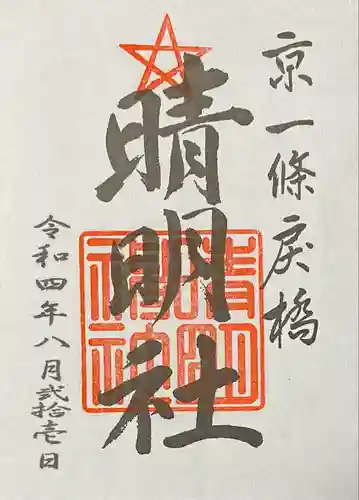 京一條戻橋
晴明社
晴明神社
令和四年八月弐拾壱日